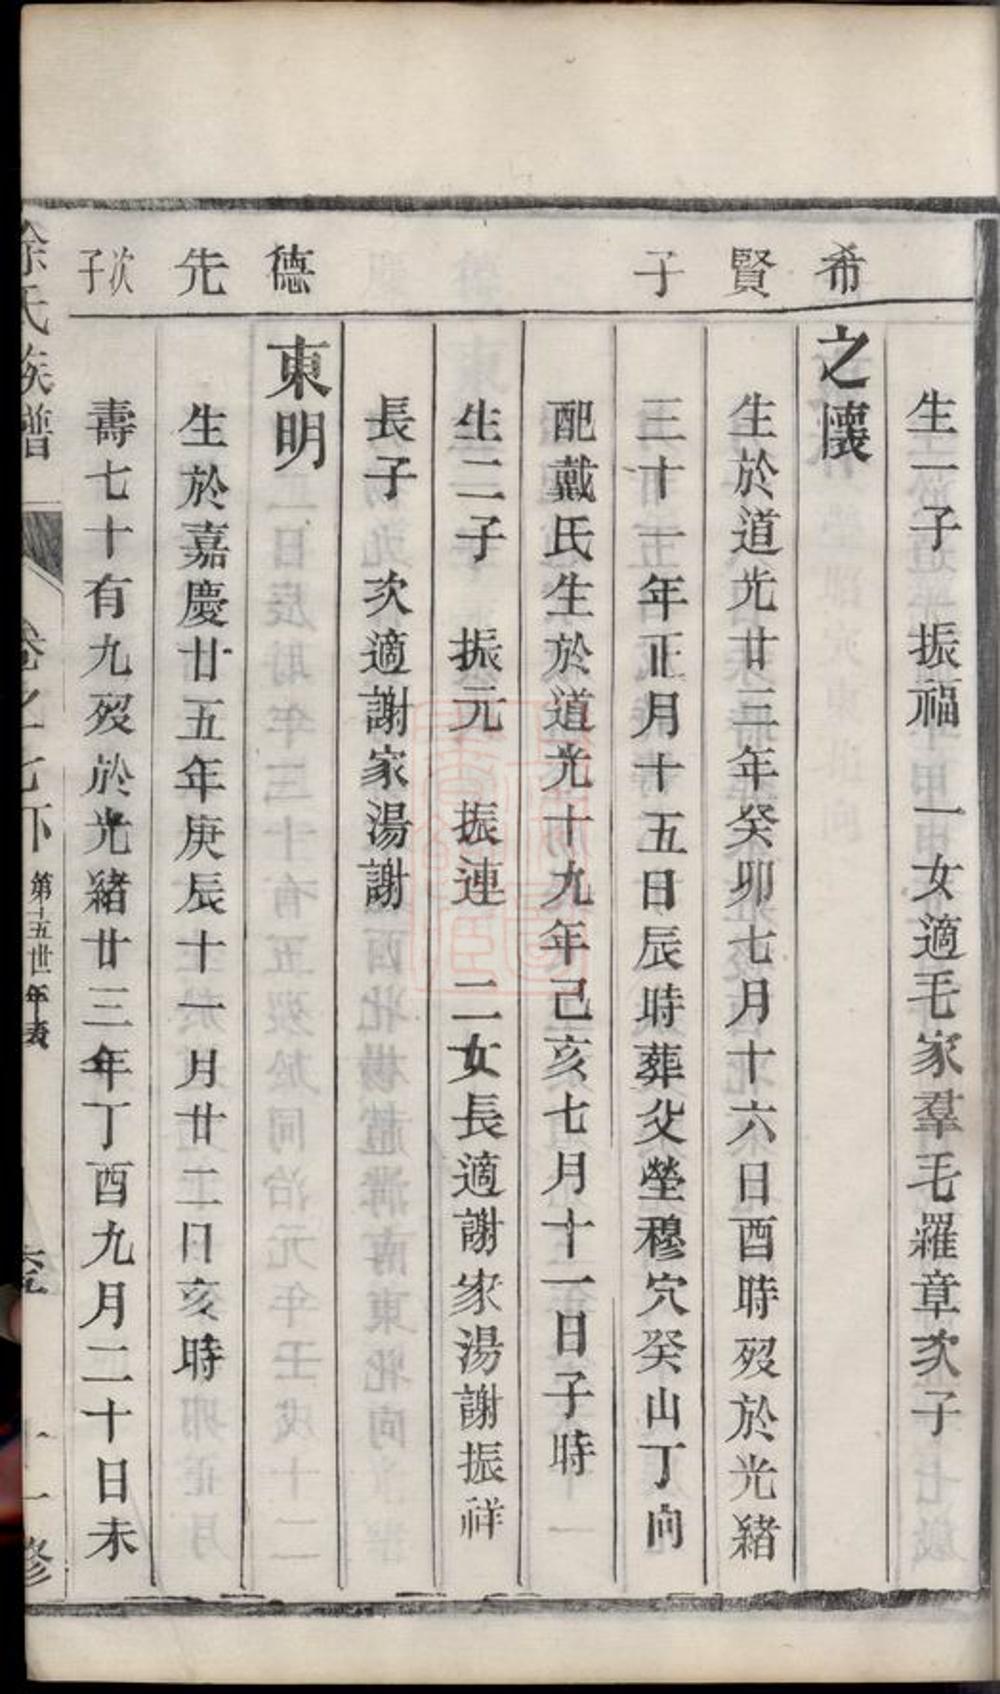 生一子 振福 一女適毛家羣毛羅章次子
希
之懷
賢
生於道光廿三年癸卯七月十六日酉時歿於光緒
子
三十一年正月十五日辰時葬父塋穆穴癸山丁向
配戴氏生於道光十九年己亥七月十一日子時
生二子 振元 振連 二女長適謝家湯謝振祥
長子 次適謝家湯謝
德
東明
先
生於嘉慶廿五年庚辰十一月廿二日亥時
次子
壽七十有九歿於光緒廿三年丁酉九月二十日未
氏族譜 卷之七下 第十五世年表 修